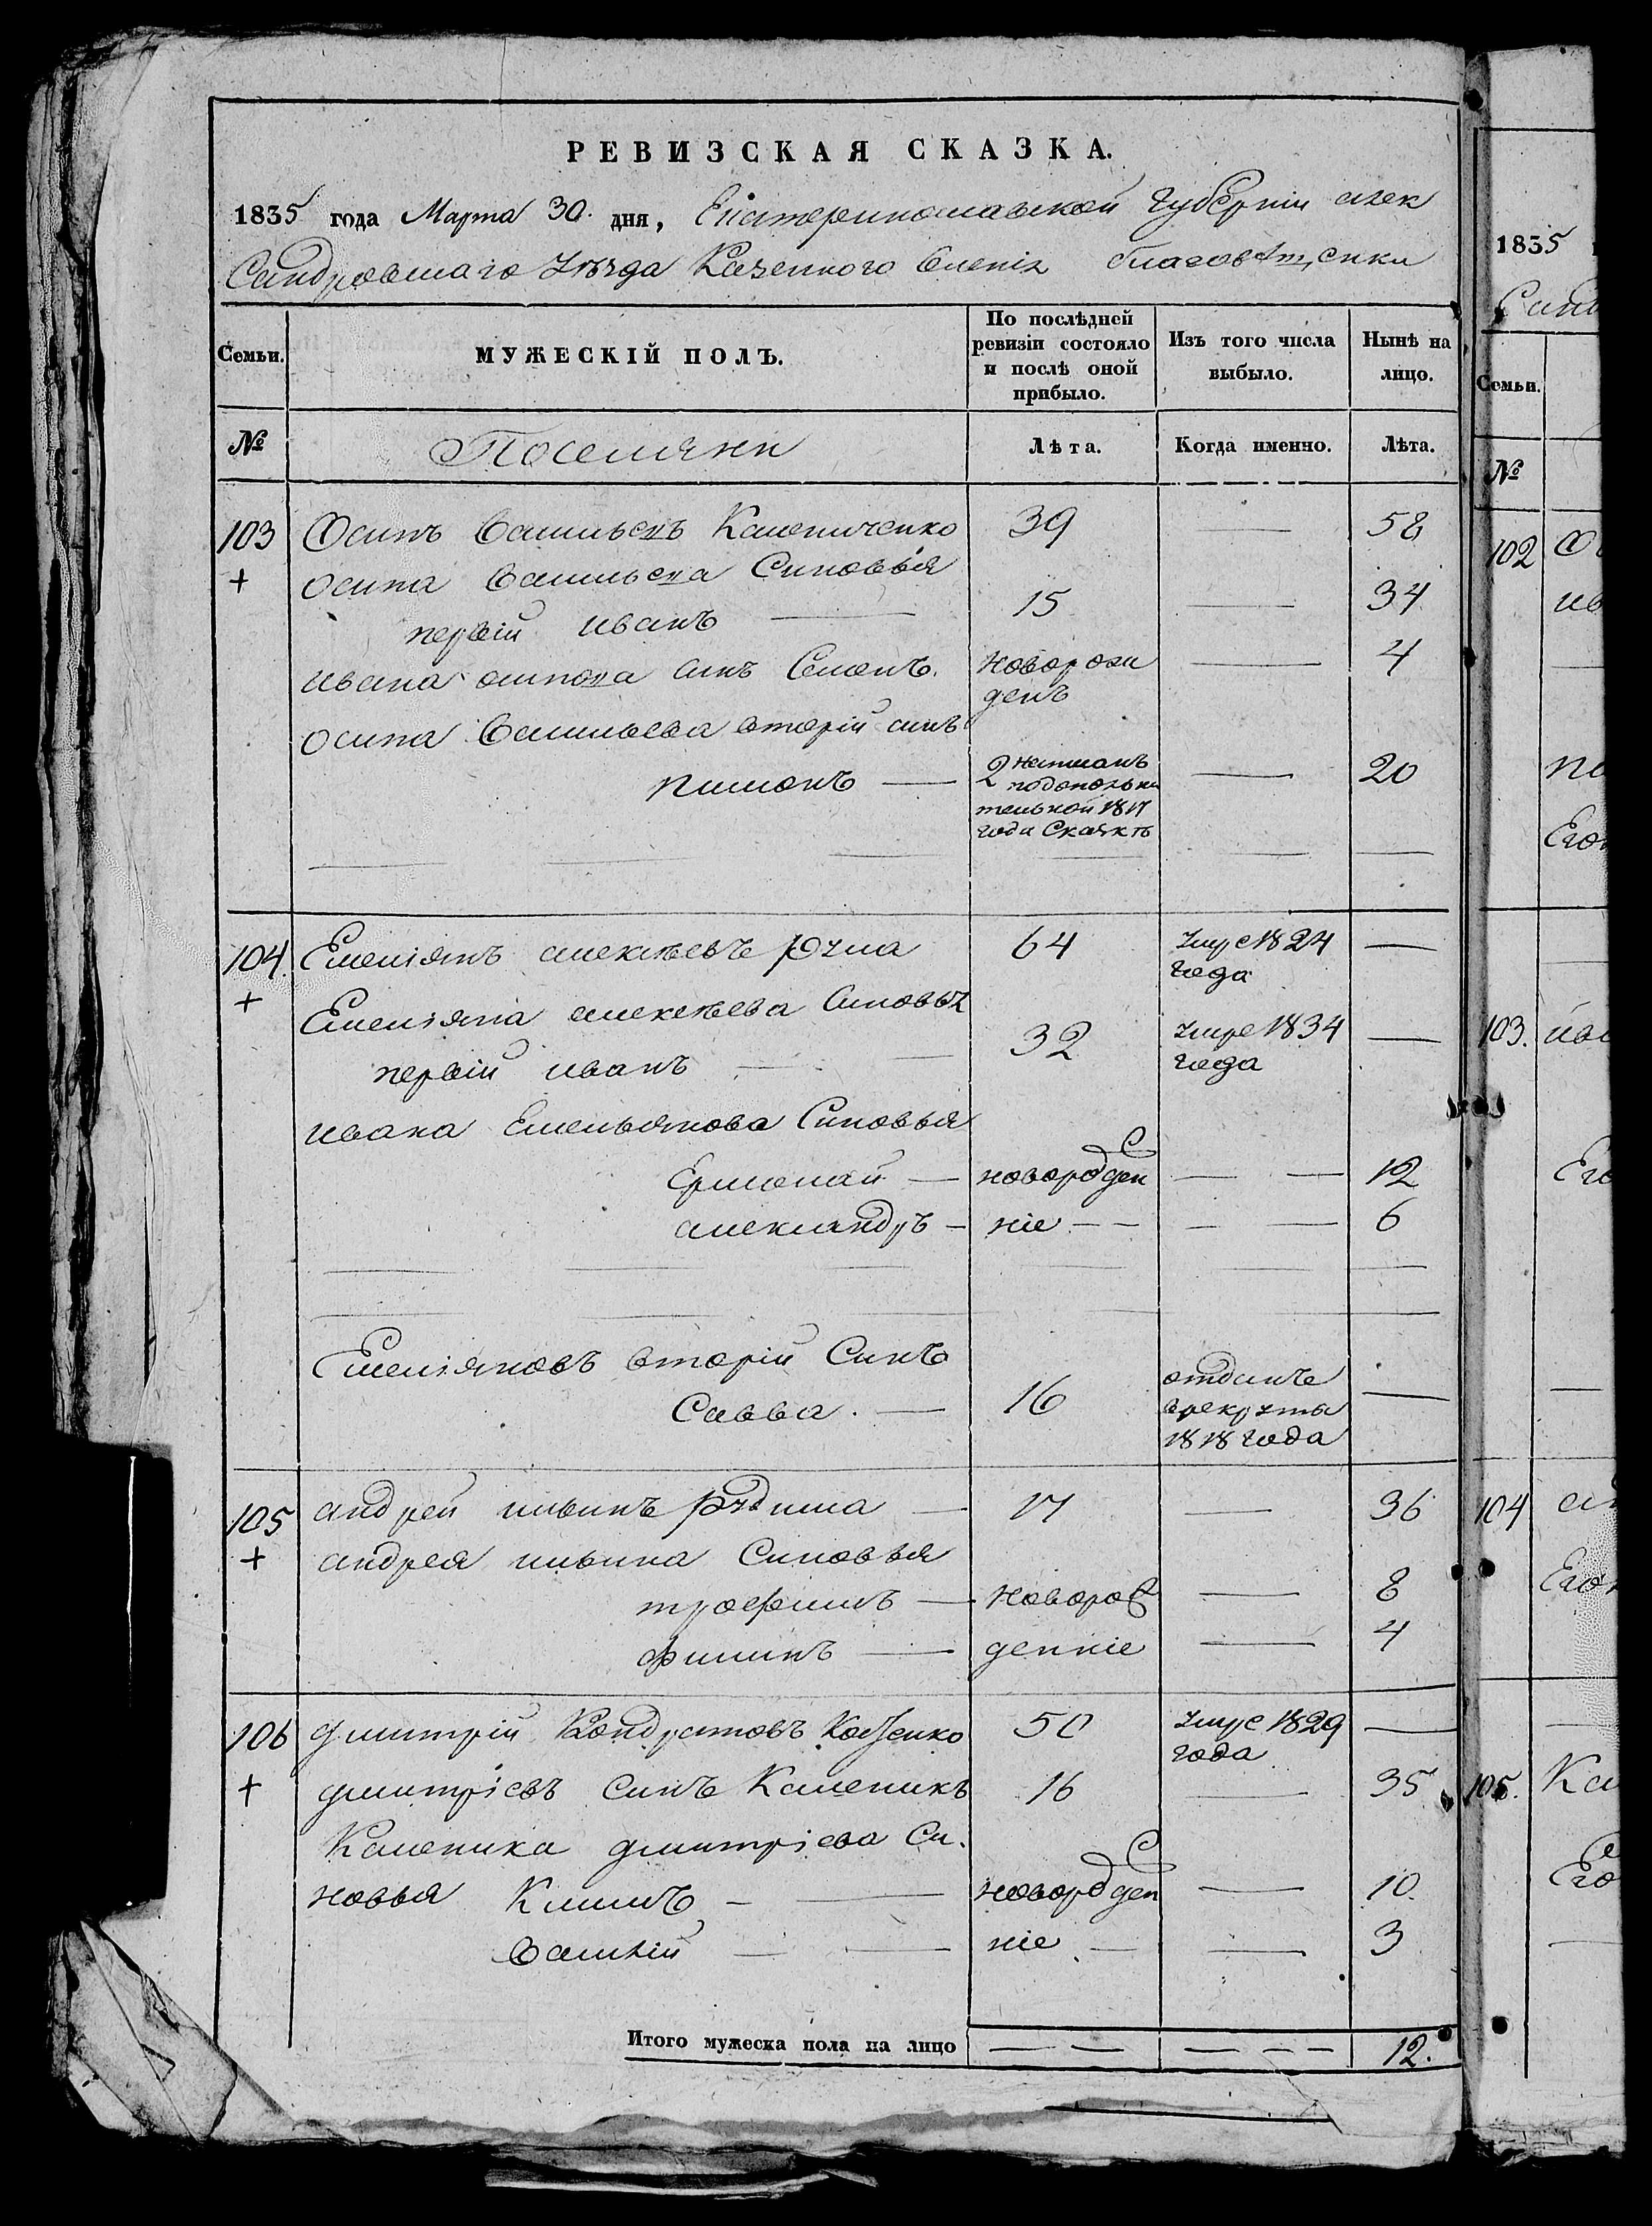 РЕВИЗСКАЯ СКАЗКА.
1835 года Марта 30. дня, Екатеринославской Губернїи алек
Сандровскаго Уѣзда Казенного Селенія благовѣщенки
Семьи.
МУЖЕСКІЙ ПОЛЪ.
По послѣдней ревизіи состояло и послѣ оной прибыло.
Изъ того числа выбыло.
Нынѣ на лицо.
№ Поселяни Лѣта. Когда именно. Лѣта.
103 Осипъ Васильевъ Калениченко 39 — 58
+ осипа Васильева Синовья
первій иванъ — 15 — 34
ивана осипова синъ Семенъ. новорож — 4
денъ
осипа Васильева вторій синъ
пимонъ — 2 написанъ — 20
подополни
тельной 1817
года Сказкѣ
104 Емеліянъ алексѣевъ 64 умре 1824 —
года
+ Емеліяна алексѣева Синовья
первій иванъ — 32 умре 1834 —
года
ивана Емельянова Синовья
Ермолай — новорожден — — 12
александръ — ніе — — — — 6
Емеліяновъ вторій Синъ
Савва. — 16 отданъ —
врекруты
1818 года
105 андрей ильинъ — 17 — 36
+ андрея ильина Синовья
трофимъ — новорож — 8
филипъ — денніе — 4
106 дмитрій Кондратовъ 50 умре 1829 —
года
+ дмитріевъ синъ Каленикъ 16 — 35
Каленика дмитріева Си.
новья Климъ — новорожден — 10.
Василій — ніе — — 3
Итого мужеска пола на лицо — — — — — 12.
1835
Санд
Семьи.
№
102
Его
103.
Его
104
Его
105. Ка
Его